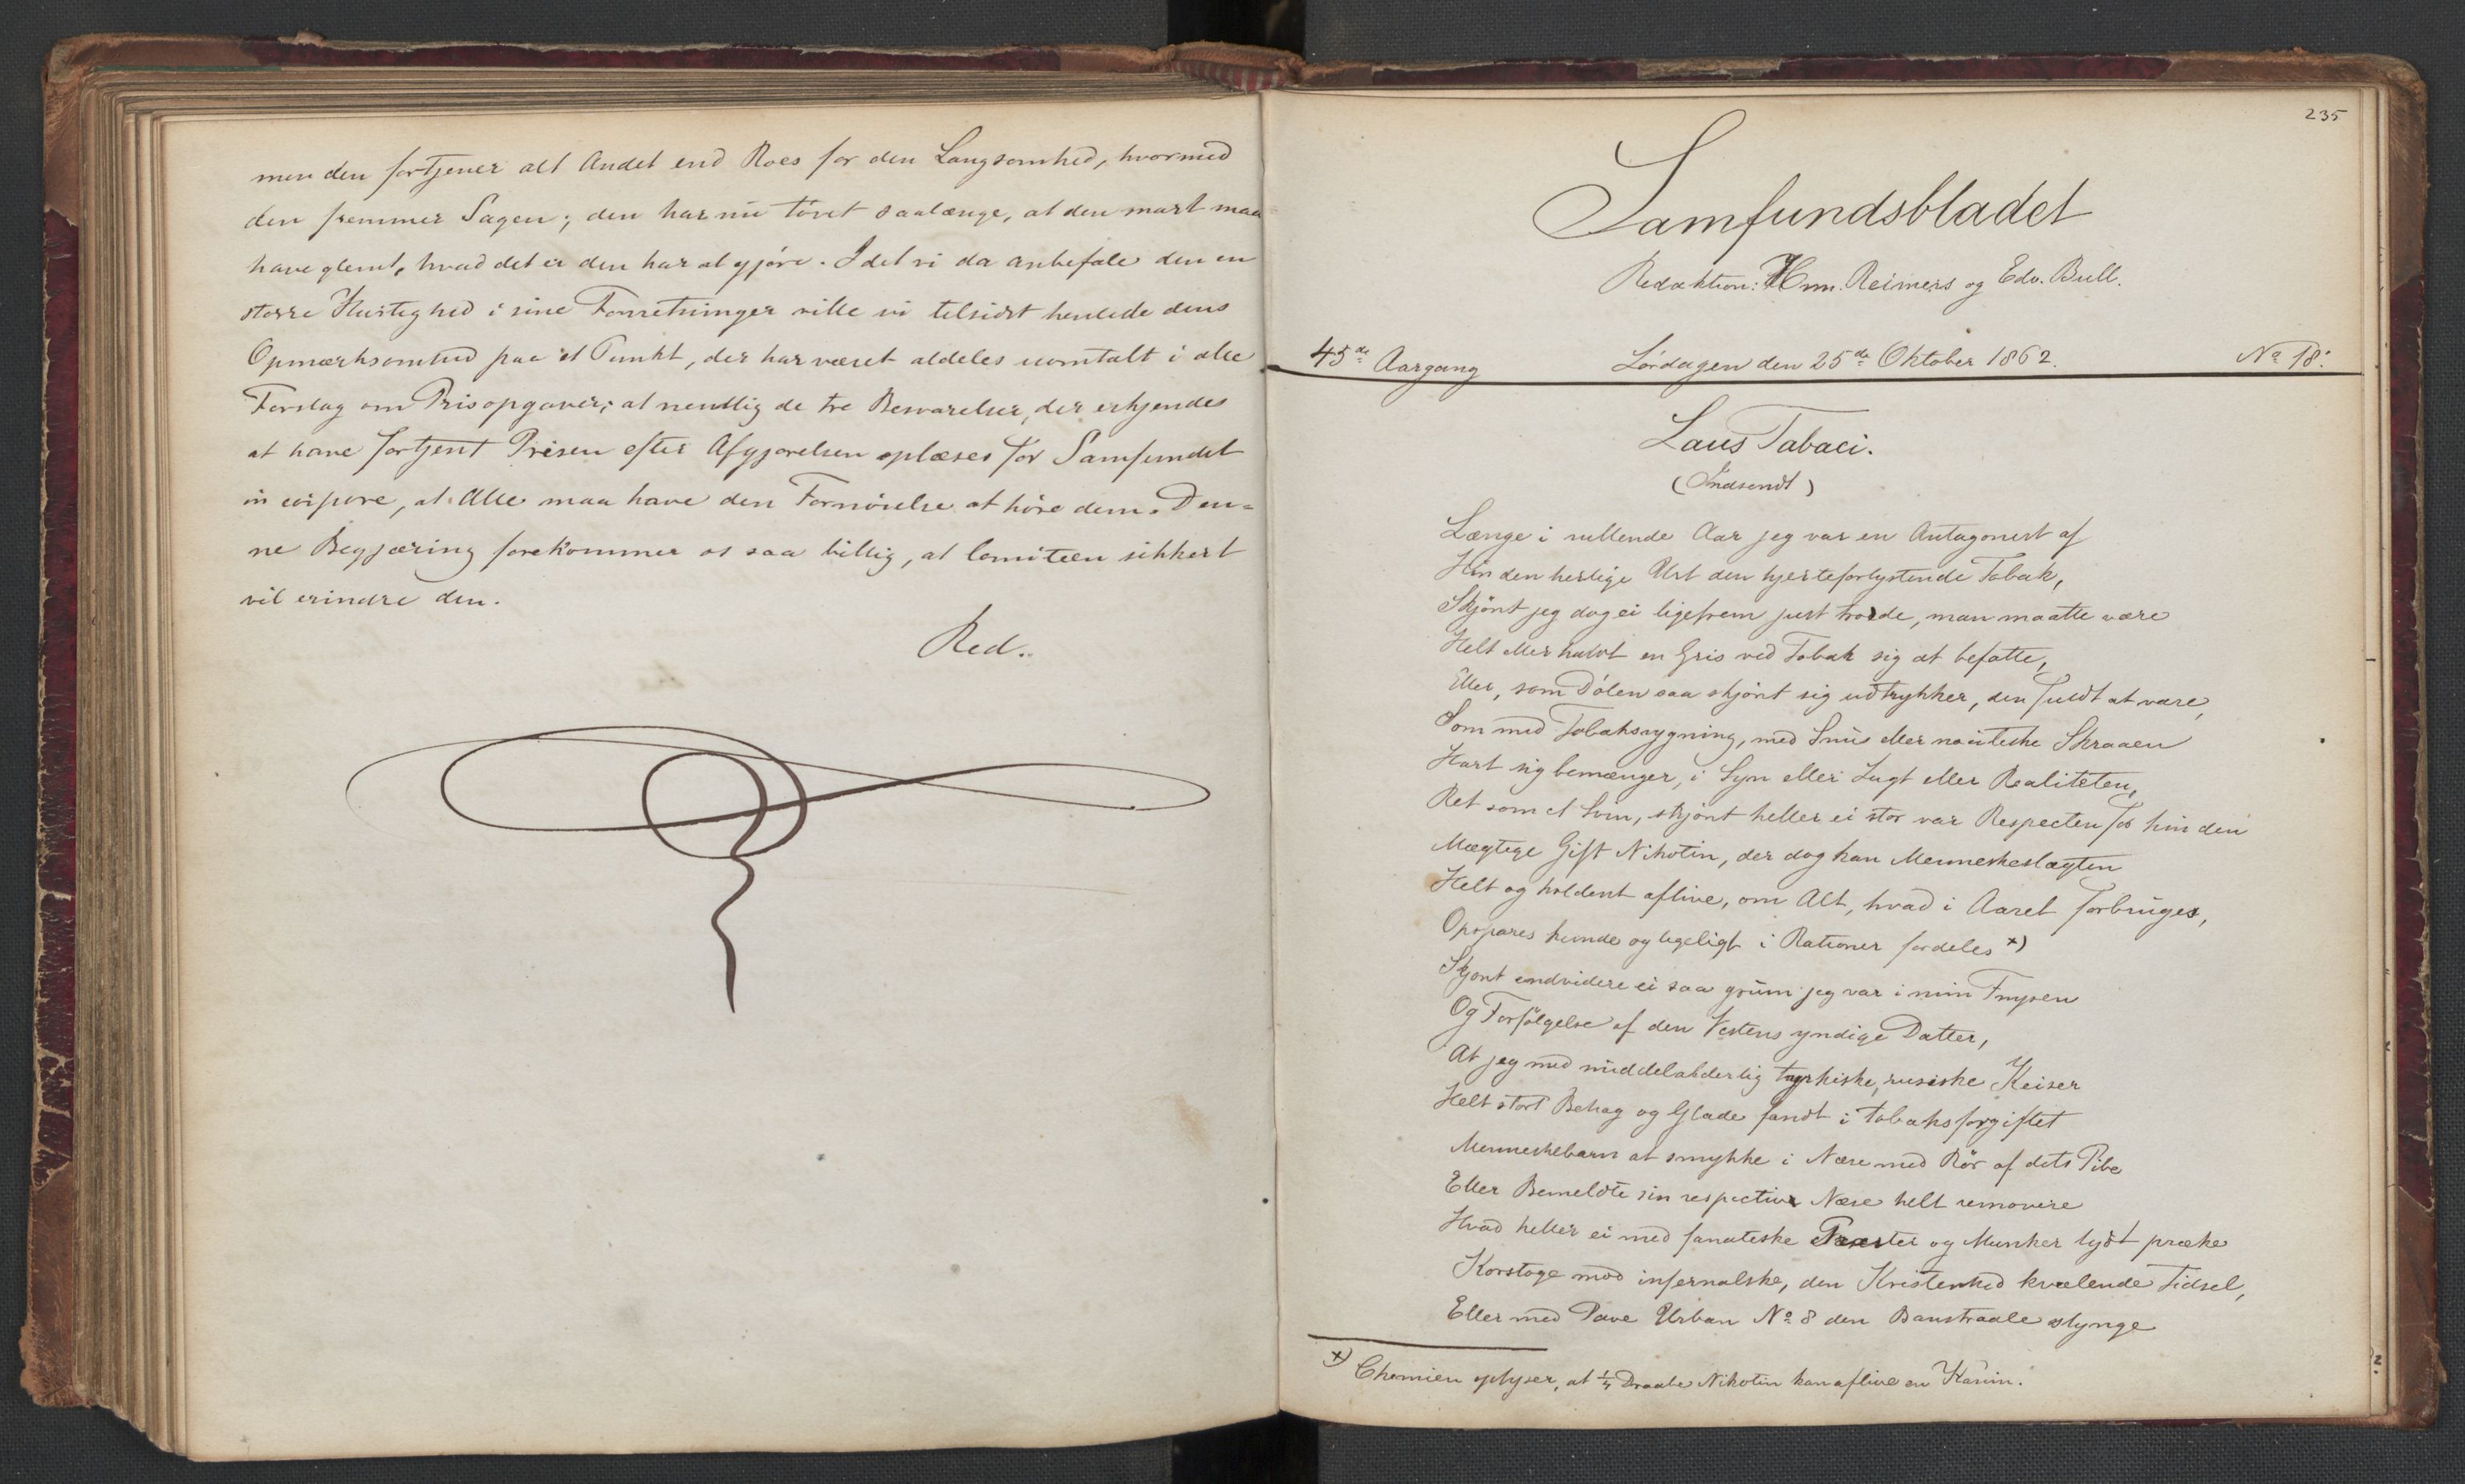 men den fortjener alt Andet end Roes for den Langsomhed, hvormed
den fremmer Sagen; den har nu tövet saalænge, at den snart maa
have glemt, hvad det er den har at gjöre. Idet vi da anbefale den en
större Hurtighed i sine Forretninger ville vi tilsidst henlede dens
Opmærksomhed paa et Punkt, der har været aldeles uomtalt i alle
Forslag om Prisopgaver; at nemlig de tre Besvarelser, der erkjendes
at have fortjent Prisen efter Afgjörelsen oplæses for Samfundet
in corpore, at Alle maa have den Fornöielse at höre dem. Den=
ne Begjæring forekommer os saa billig, at Comiteen sikkert
vil erindre den.
Red.
235
Samfundsbladet
Redaktion: Hm. Reimers og Edv. Bull.
45de Aargang Lördagen den 25de Oktober 1862. No 18.
Laus Tabaci.
(Indsendt)
Længe i rullende Aar jeg var en Antagonist af
Hin den herlige Urt den hjerteforlystende Tobak,
Skjönt jeg dog ei ligefrem just troede, man maatte være
Helt eller halvt en Gris ved Tobak sig at befatte,
Eller, som Dölen saa skjönt sig udtrykker, den fuldt at være,
Som med Tobaksrygning, med Snus eller Skraaen
Hart sig bemænger, i Syn eller Lugt eller Realiteten,
Ret som et Sviin, skjönt heller ei stor var Respecten for hin den
Mægtige Gift Nikotin, der dog kan Menneskeslægten
Helt og holdent aflive, om Alt, hvad i Aaret forbruges,
Opspares kunde og ligeligt i Rationer fordeles x)
Skjönt endvidere ei saa grum jeg var i min Fnysen
Og Forfölgelse af den Vestens yndige Datter,
At jeg med middelalderlig tyrkiske, russiske Keiser
Helt stort Behag og Glæde fandt i tobaksforgiftet
Menneskebarn at smykke i Næse med Rör af dets Pibe
Eller Bemeldte sin respective Næse helt removere
Hvad heller ei med fanatiske Præster og Munker lydt præke
Korstoge mod infernalske, den Kristenhed kvælende Tidsel,
Eller med Pave Urban No 8 den Banstraale slynge
x) Chemien oplyser, at 1/4 Draabe Nikotin kan aflive en Kanin.